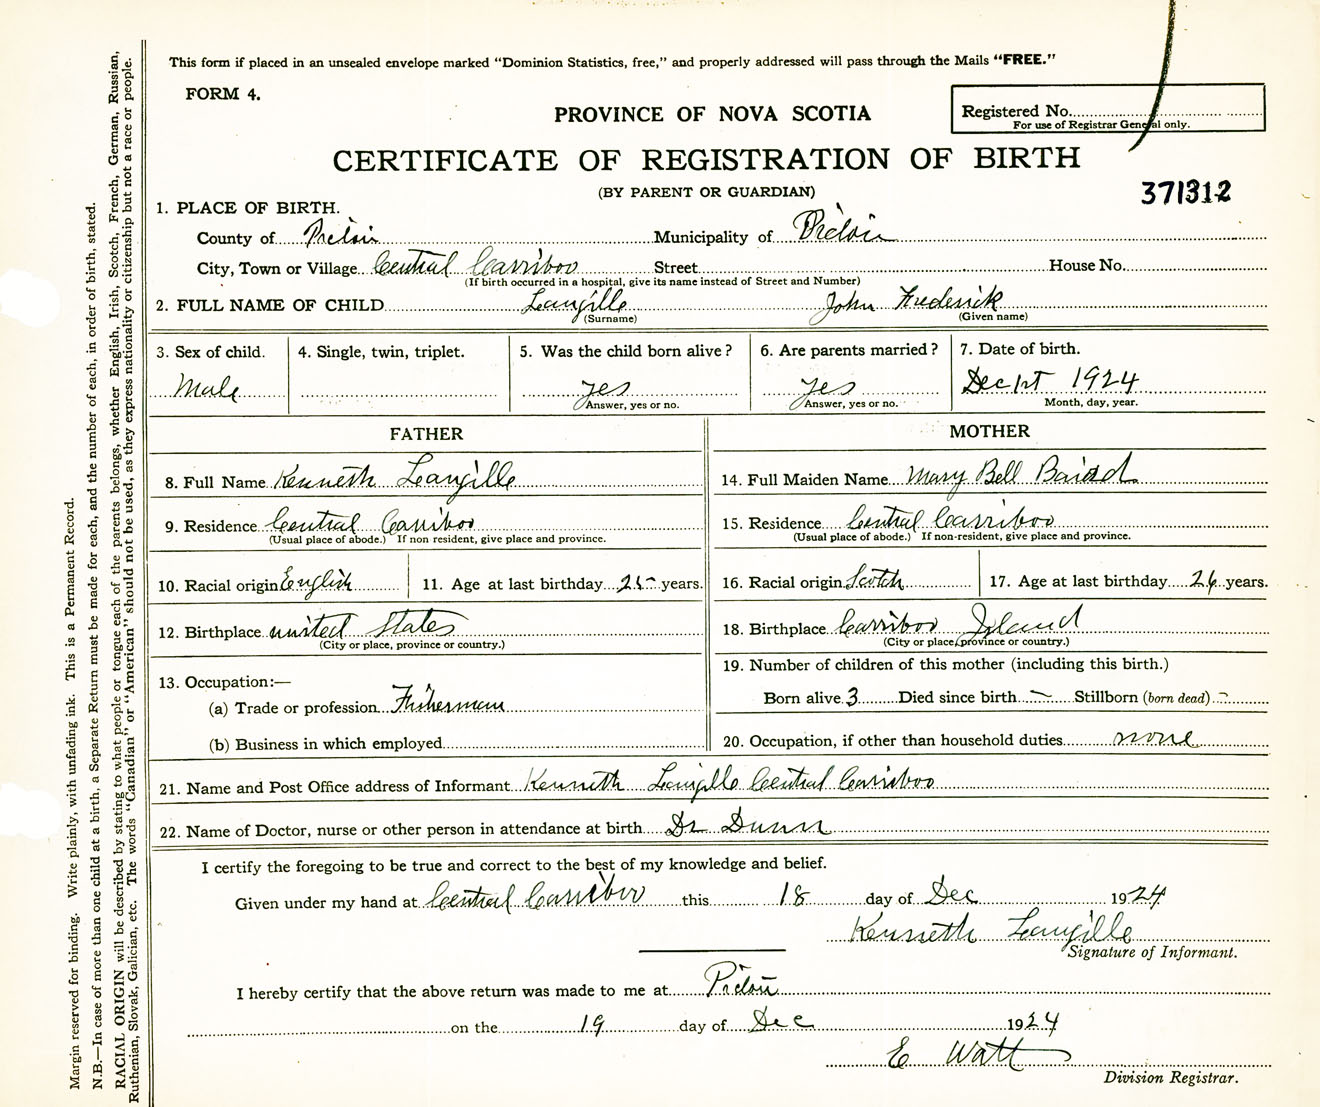 This form if placed in an unsealed envelope marked "Dominion Statistics, free," and properly addressed will pass through the Mails "FREE."
FORM 4.
PROVINCE OF NOVA SCOTIA
Registered No.
For use of Registrar General only.
CERTIFICATE OF REGISTRATION OF BIRTH
(BY PARENT OR GUARDIAN)
371312
1. PLACE OF BIRTH.
County of Pictou Municipality of Pictou
City, Town or Village Central Carriboo Street House No.
(If birth occurred in a hospital, give its name instead of Street and Number)
2. FULL NAME OF CHILD Langille John Frederick
(Surname) (Given name)
3. Sex of child. 4. Single, twin, triplet. 5. Was the child born alive? 6. Are parents married? 7. Date of birth.
Male yes yes Dec 1st 1924
Answer, yes or no. Answer, yes or no. Month, day, year.
FATHER MOTHER
8. Full Name Kenneth Langille 14. Full Maiden Name Mary Bell Baird
9. Residence Central Carriboo 15. Residence Central Carriboo
(Usual place of abode.) If non resident, give place and province. (Usual place of abode.) If non-resident, give place and province.
10. Racial origin English 11. Age at last birthday 25 years. 16. Racial origin Scotch 17. Age at last birthday 26 years.
12. Birthplace united States 18. Birthplace Carriboo Island
(City or place, province or country.) (City or place, province or country.)
19. Number of children of this mother (including this birth.)
13. Occupation:—
(a) Trade or profession Fisherman Born alive 3 Died since birth — Stillborn (born dead) —
(b) Business in which employed 20. Occupation, if other than household duties none
21. Name and Post Office address of Informant Kenneth Langille Central Carriboo
22. Name of Doctor, nurse or other person in attendance at birth Dr Dunn
I certify the foregoing to be true and correct to the best of my knowledge and belief.
Given under my hand at Central Carriboo this 18 day of Dec 1924
Kenneth Langille
Signature of Informant.
I hereby certify that the above return was made to me at Pictou
on the 19 day of Dec 1924
E Watt
Division Registrar.
Margin reserved for binding. Write plainly, with unfading ink. This is a Permanent Record.
N.B.—In case of more than one child at a birth, a Separate Return must be made for each, and the number of each, in order of birth, stated.
RACIAL ORIGIN will be described by stating to what people or tongue each of the parents belongs, whether English, Irish, Scotch, French, German, Russian,
Ruthenian, Slovak, Galician, etc. The words "Canadian" or "American" should not be used, as they express nationality or citizenship but not a race or people.